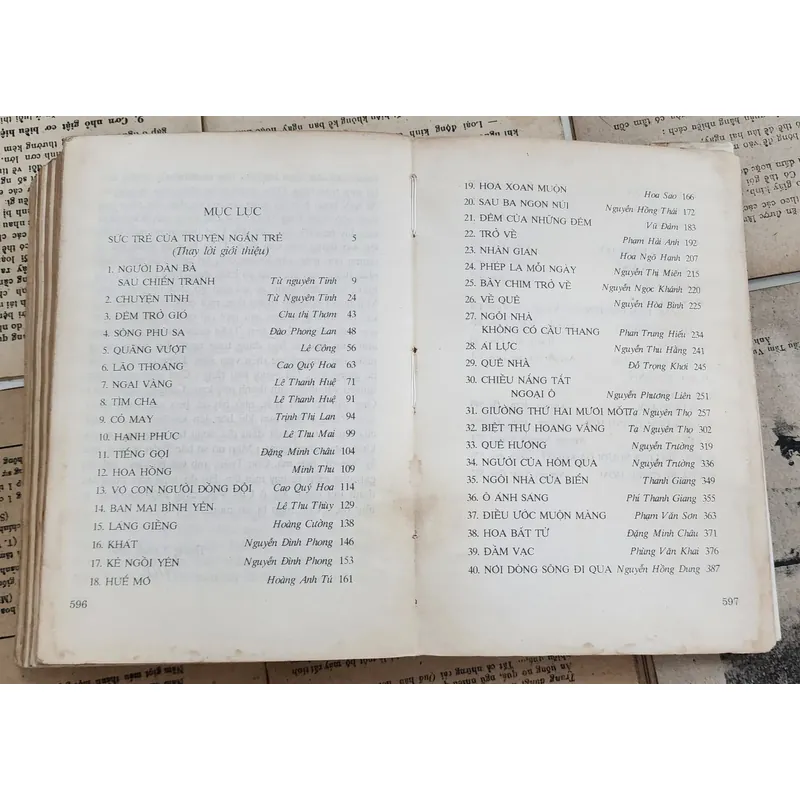 MỤC LỤC
SỨC TRẺ CỦA TRUYỆN NGẮN TRẺ 5
(Thay lời giới thiệu)
1. NGƯỜI ĐÀN BÀ
SAU CHIẾN TRANH Từ nguyên Tĩnh 9
2. CHUYỆN TÌNH Từ Nguyên Tĩnh 24
3. ĐÊM TRỞ GIÓ Chu thị Thơm 43
4. SÔNG PHÙ SA Đào Phong Lan 48
5. QUÃNG VƯỢT Lê Công 56
6. LÃO THOẢNG Cao Quý Hoa 63
7. NGAI VÀNG Lê Thanh Huệ 71
8. TÌM CHA Lê Thanh Huệ 91
9. CỎ MAY Trịnh Thị Lan 94
10. HẠNH PHÚC Lê Thu Mai 99
11. TIẾNG GỌI Đặng Minh Châu 104
12. HOA HỒNG Minh Thu 109
13. VỢ CON NGƯỜI ĐỒNG ĐỘI Cao Quý Hoa 114
14. BAN MAI BÌNH YÊN Lê Thu Thủy 129
15. LÁNG GIỀNG Hoàng Cường 138
16. KHÁT Nguyễn Đình Phong 146
17. KẺ NGỒI YÊN Nguyễn Đình Phong 153
18. HUẾ MƠ Hoàng Anh Tú 161
596
19. HOA XOAN MUỘN Hoa Sao 166
20. SAU BA NGỌN NÚI Nguyễn Hồng Thái 172
21. ĐÊM CỦA NHỮNG ĐÊM Vũ Đảm 183
22. TRỞ VỀ Phạm Hải Anh 192
23. NHÂN GIAN Hoa Ngõ Hạnh 207
24. PHÉP LẠ MỖI NGÀY Nguyễn Thị Miên 215
25. BẦY CHIM TRỞ VỀ Nguyễn Ngọc Khánh 220
26. VỀ QUÊ Nguyễn Hòa Bình 225
27. NGÔI NHÀ
KHÔNG CÓ CẦU THANG Phan Trung Hiếu 234
28. ÁI LỰC Nguyễn Thu Hằng 241
29. QUÊ NHÀ Đỗ Trọng Khơi 245
30. CHIỀU NẮNG TẮT
NGOẠI Ô Nguyễn Phương Liên 251
31. GIƯỜNG THỨ HAI MƯƠI MỐT Tạ Nguyên Thọ 257
32. BIỆT THỰ HOANG VẮNG Tạ Nguyên Thọ 302
33. QUÊ HƯƠNG Nguyễn Trường 319
34. NGƯỜI CỦA HÔM QUA Nguyễn Trường 336
35. NGÔI NHÀ CỬA BIỂN Thanh Giang 349
36. Ô ÁNH SÁNG Phí Thanh Giang 355
37. ĐIỀU ƯỚC MUỘN MÀNG Phạm Văn Sơn 363
38. HOA BẤT TỬ Đặng Minh Châu 371
39. ĐẦM VẠC Phùng Văn Khai 376
40. NƠI DÒNG SÔNG ĐI QUA Nguyễn Hồng Dung 387
597